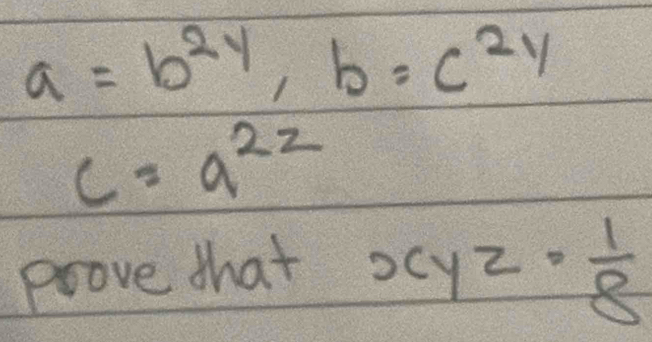 a = b^2y, b = c^2y
c = a^2z
prove that xyz = 1/8